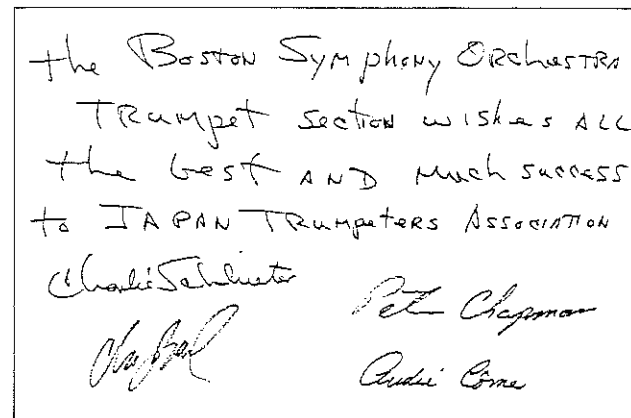 the Boston Symphony Orchestra
Trumpet section wishes all
the best and much success
to Japan Trumpeters Association
Charlie Schlueter
Peter Chapman
André Côme